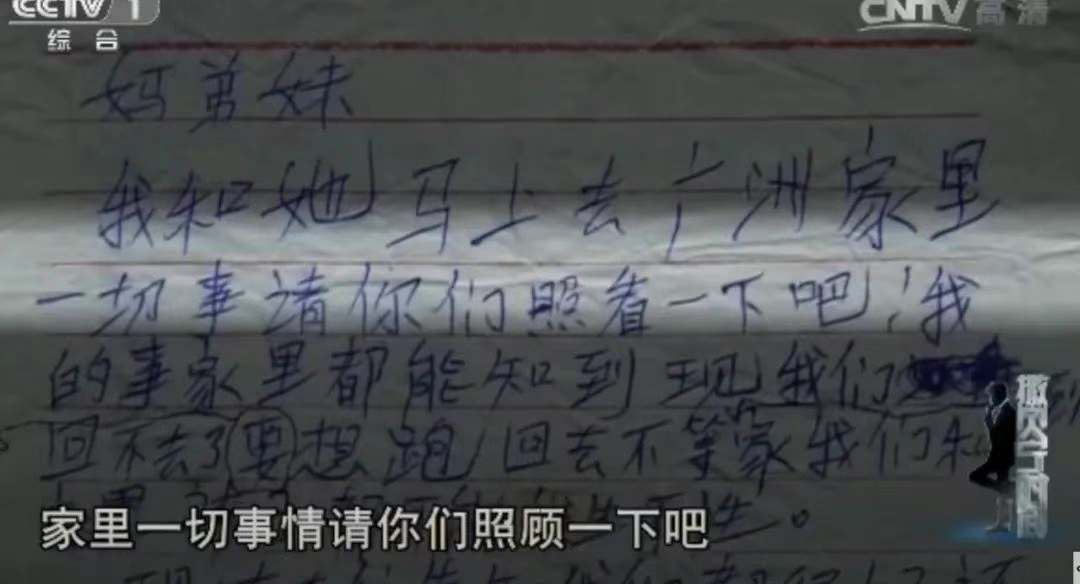 CCTV 1
综合
CNTV 高清
妈弟妹
我和她马上去广洲家里
一切事请你们照看一下吧！我
的事家里都能知到现我们
回不去了要想跑回去不等家我们和
家里一切事情请你们照顾一下吧